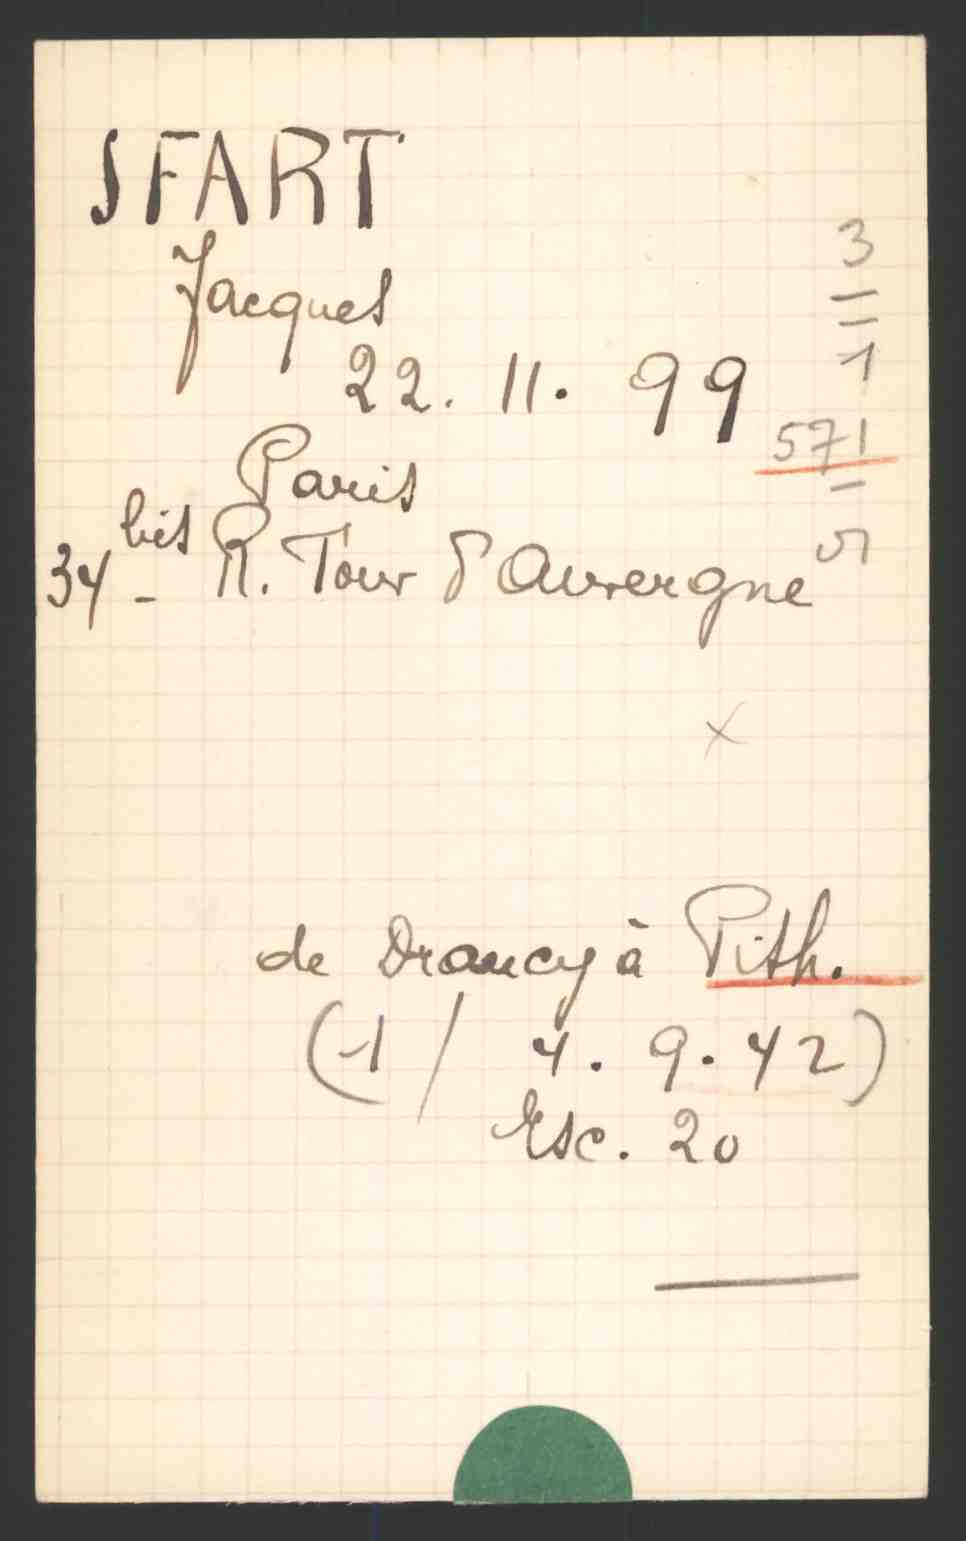 SFART
Jacques
22. 11. 99
Paris
34 bis - R. Tour d'Auvergne
3
1
571
de Drancy à Pith.
(1 / 4. 9. 42)
Esc. 20